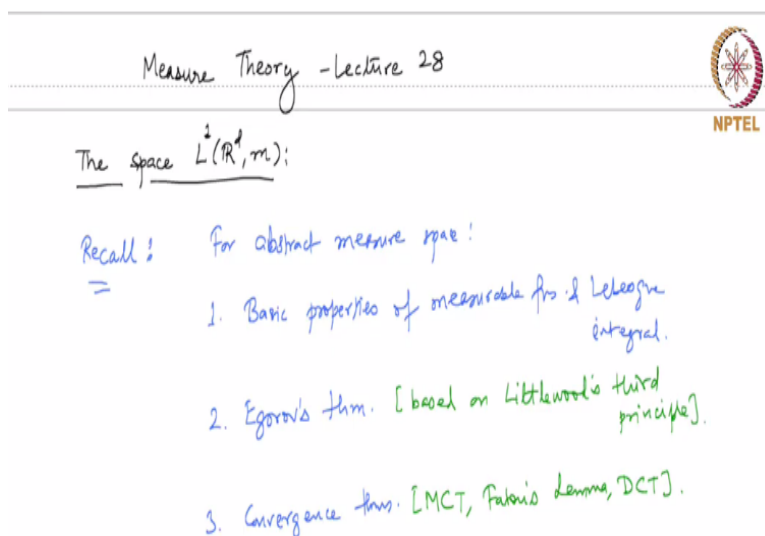 Measure Theory - Lecture 28
NPTEL
The space L¹(ℝᵈ, m):
Recall: For abstract measure space:
1. Basic properties of measurable fns. & Lebesgue
integral.
2. Egorov's thm. [based on Littlewood's third
principle].
3. Convergence thms. [MCT, Fatou's Lemma, DCT].